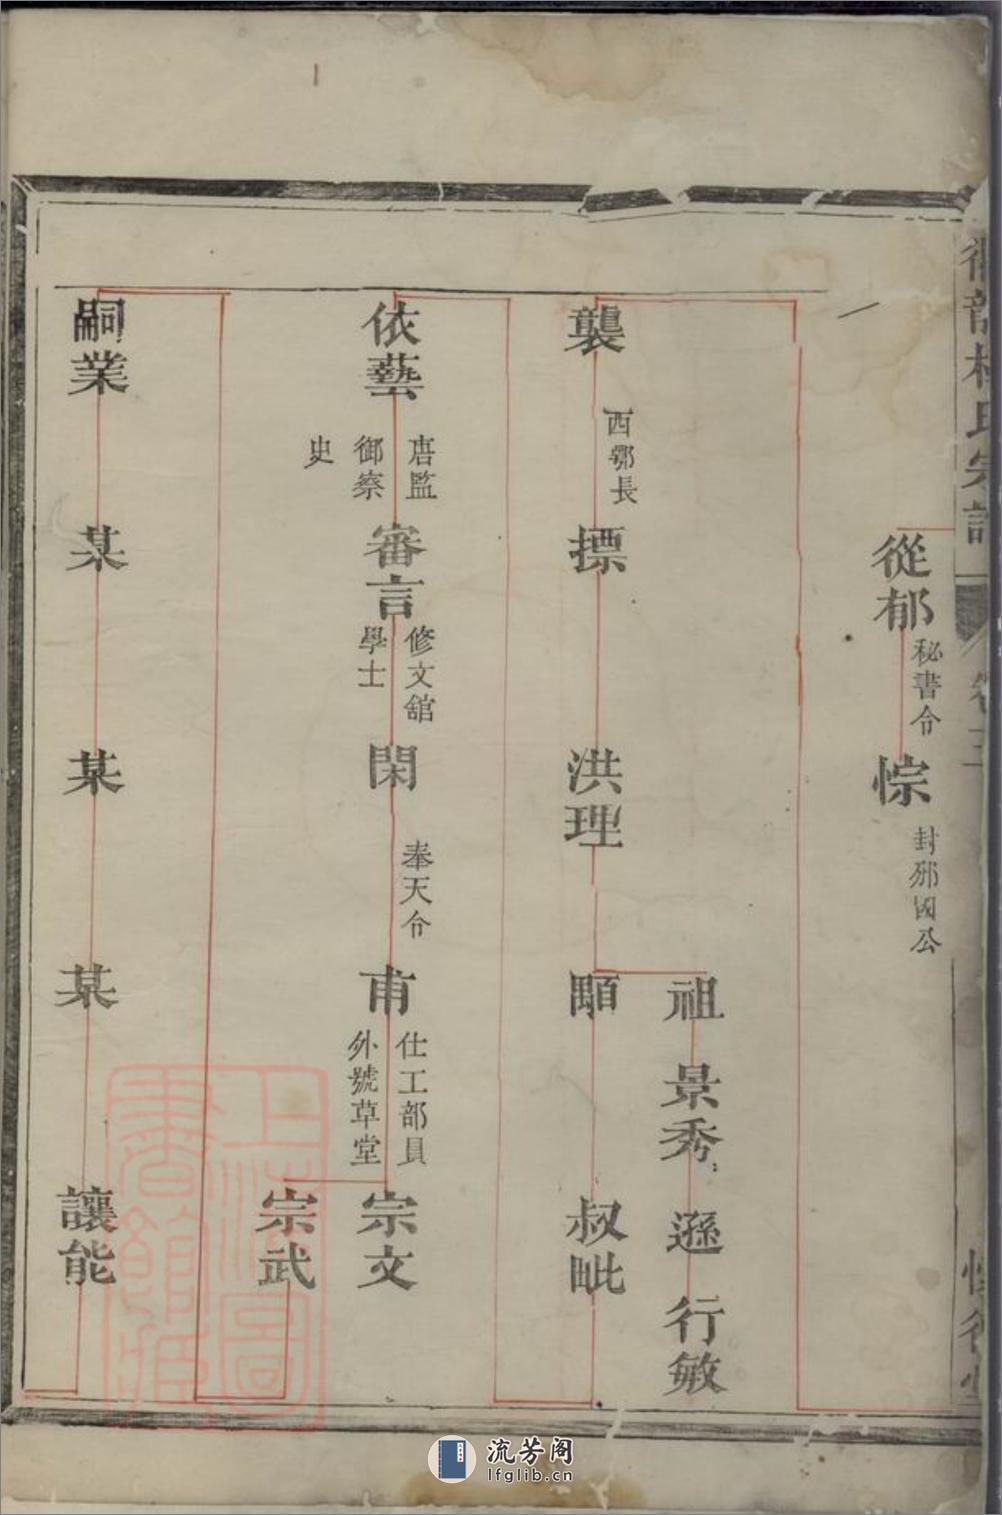 杜氏宗譜
從郁
秘書令
悰
封邠國公
祖
景秀
遜
行敏
襲
西鄂長
摽
洪理
顒
叔毗
依藝
唐監
御察
史
審言
修文舘
學士
閑
奉天令
甫
仕工部員
外號草堂
宗文
宗武
嗣業
某
某
某
讓能
上海圖
書館藏
流芳阁
lfglib.cn